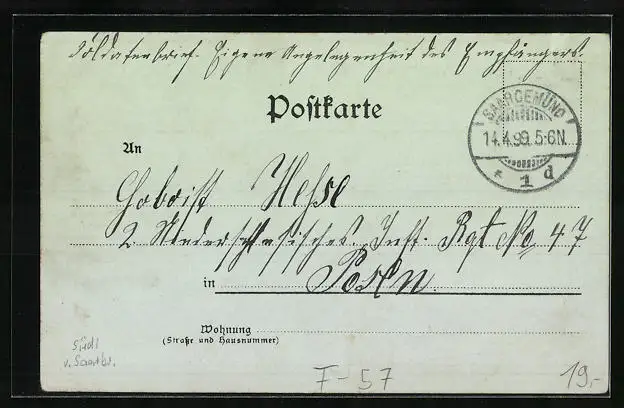 Soldatenbrief. Eigene Angelegenheit des Empfängers.
Postkarte
SAARGEMÜND
14.4.99. 5-6N.
* 1 d
An
Hoboist Hesse
2. Niederschlesisches Inft. Rgt No 47
in Posen.
Wohnung
(Straße und Hausnummer)
südl
v. Saarbr.
F-57
19,-